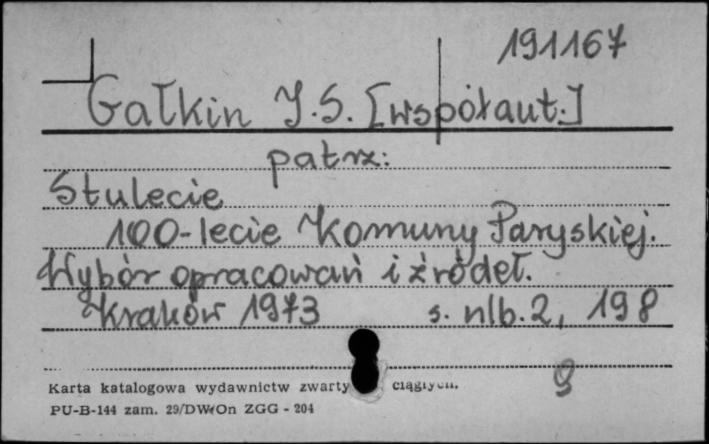 191167
Gałkin J.S. [współaut.]
patrz:
Stulecie
100-lecie Komuny Paryskiej.
Wybór opracowań i źródeł.
Kraków 1973 s. nlb. 2, 198
Karta katalogowa wydawnictw zwarty ciągłych.
PU-B-144 zam. 29/DW/On ZGG - 204